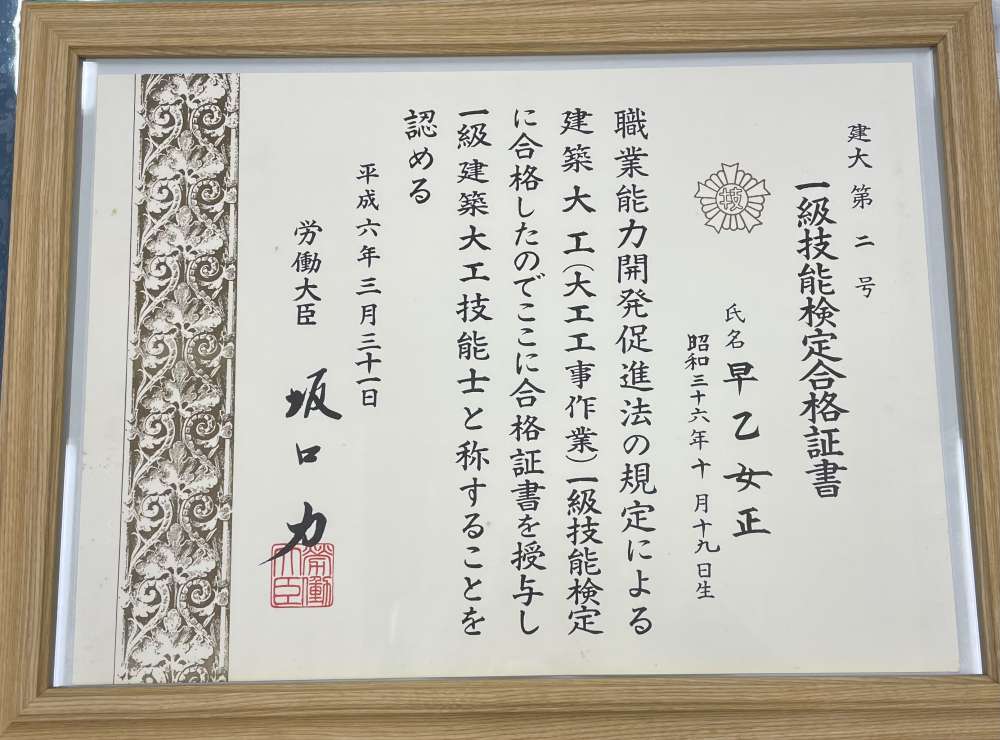 建大第二号
一級技能検定合格証書
技
氏名 早乙女正
昭和三十六年十月十九日生
職業能力開発促進法の規定による
建築大工(大工工事作業)一級技能検定
に合格したのでここに合格証書を授与し
一級建築大工技能士と称することを
認める
平成六年三月三十一日
労働大臣 坂口力
労働大臣